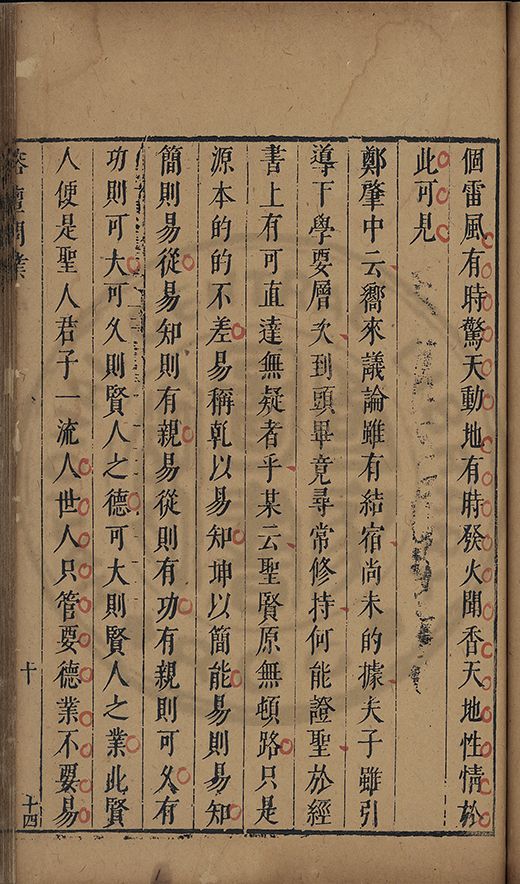 個雷風有時驚天動地有時發火聞香天地性情於
此可見
鄭肇中云嚮來議論雖有結宿尚未的據夫子雖引
導下學要層次到頭畢竟尋常修持何能證聖於經
書上有可直達無疑者乎某云聖賢原無頓路只是
源本的的不差易稱乾以易知坤以簡能易則易知
簡則易從易知則有親易從則有功有親則可久有
功則可大可久則賢人之德可大則賢人之業此賢
人便是聖人君子一流人世人只管要德業不要易
榕壇問業
十
十四